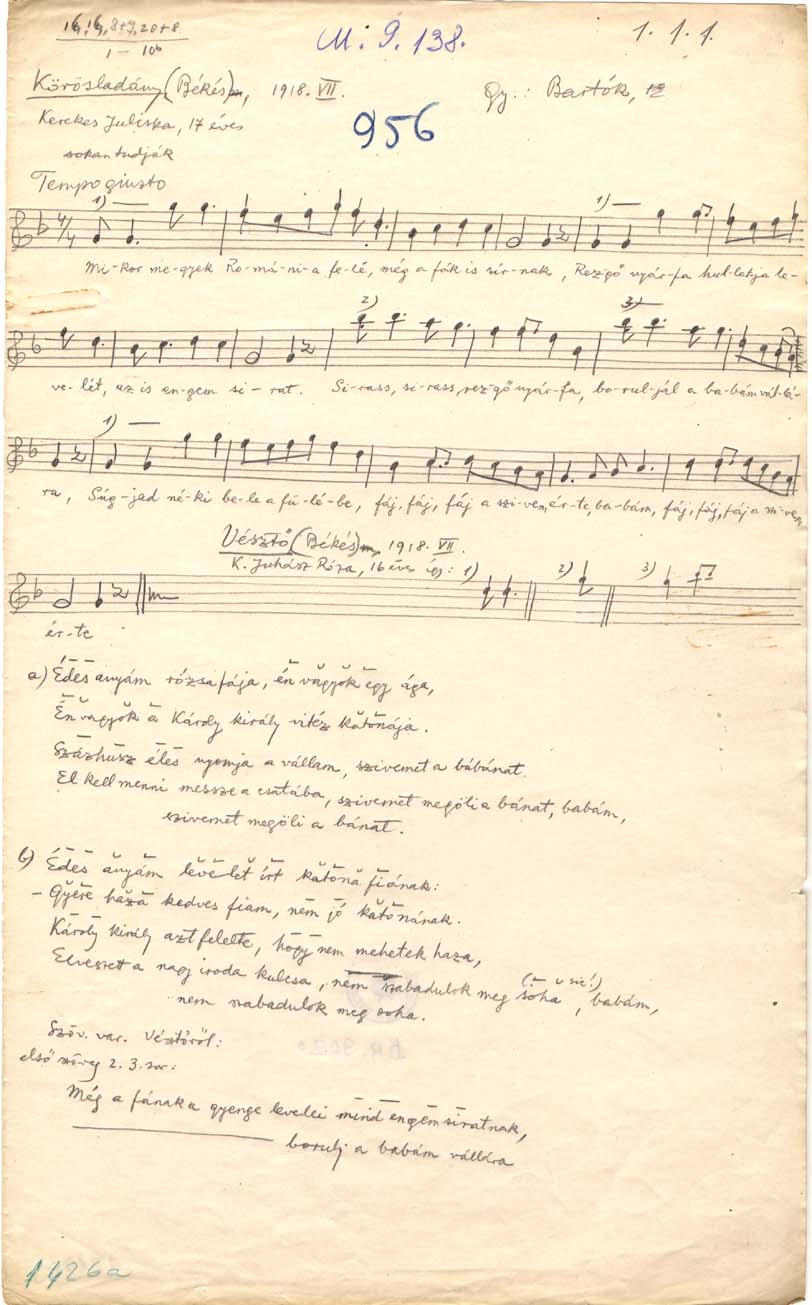 16, 16, 8+9, 20+8
1 — 10b
M. F. 138.
1. 1. 1.
Körösladány (Békés)m, 1918. VII.
Gy.: Bartók,
956
Kerekes Juliska, 17 éves
sokan tudják
Tempo giusto
1) 1)
4/4
Mi-kor me-gyek Ro-má-ni-a fe-lé, még a fák is sír-nak, Rezgő nyár-fa hul-latja le-
2) 3)
ve-lét, az is en-gem si-rat. Si-rass, si-rass, rezgő nyár-fa, bo-rul-jál a ba-bám vál-lá-
1)
ra, Súg-jad né-ki be-le a fü-lé-be, fáj, fáj, fáj a szi-vem ér-te, ba-bám, fáj, fáj, fáj a szi-vem
Vésztő (Békés)m, 1918. VII.
K. Juhász Róza, 16 éves így: 1) 2) 3)
ér-te
a) Édes anyám rózsafája, én vagyok egy ága,
Én vagyok a Károly király vitéz katonája.
Százhúsz éles nyomja a vállam, szivemet a bábánat.
El kell menni messze a csatába, szivemet megöli a bánat, babám,
szivemet megöli a bánat.
b) Édes anyám levelet írt katona fiának:
– Gyere haza kedves fiam, nem jó katonának.
Károly király azt felelte, hogy nem mehetek haza,
Elveszett a nagy iroda kulcsa, nem szabadulok meg soha (sic!), babám,
nem szabadulok meg soha.
Szöv. var. Vésztőről:
első szöveg 2. 3. sor:
Még a fának a gyenge levelei mind engem siratnak,
borulj a babám vállára
1426a